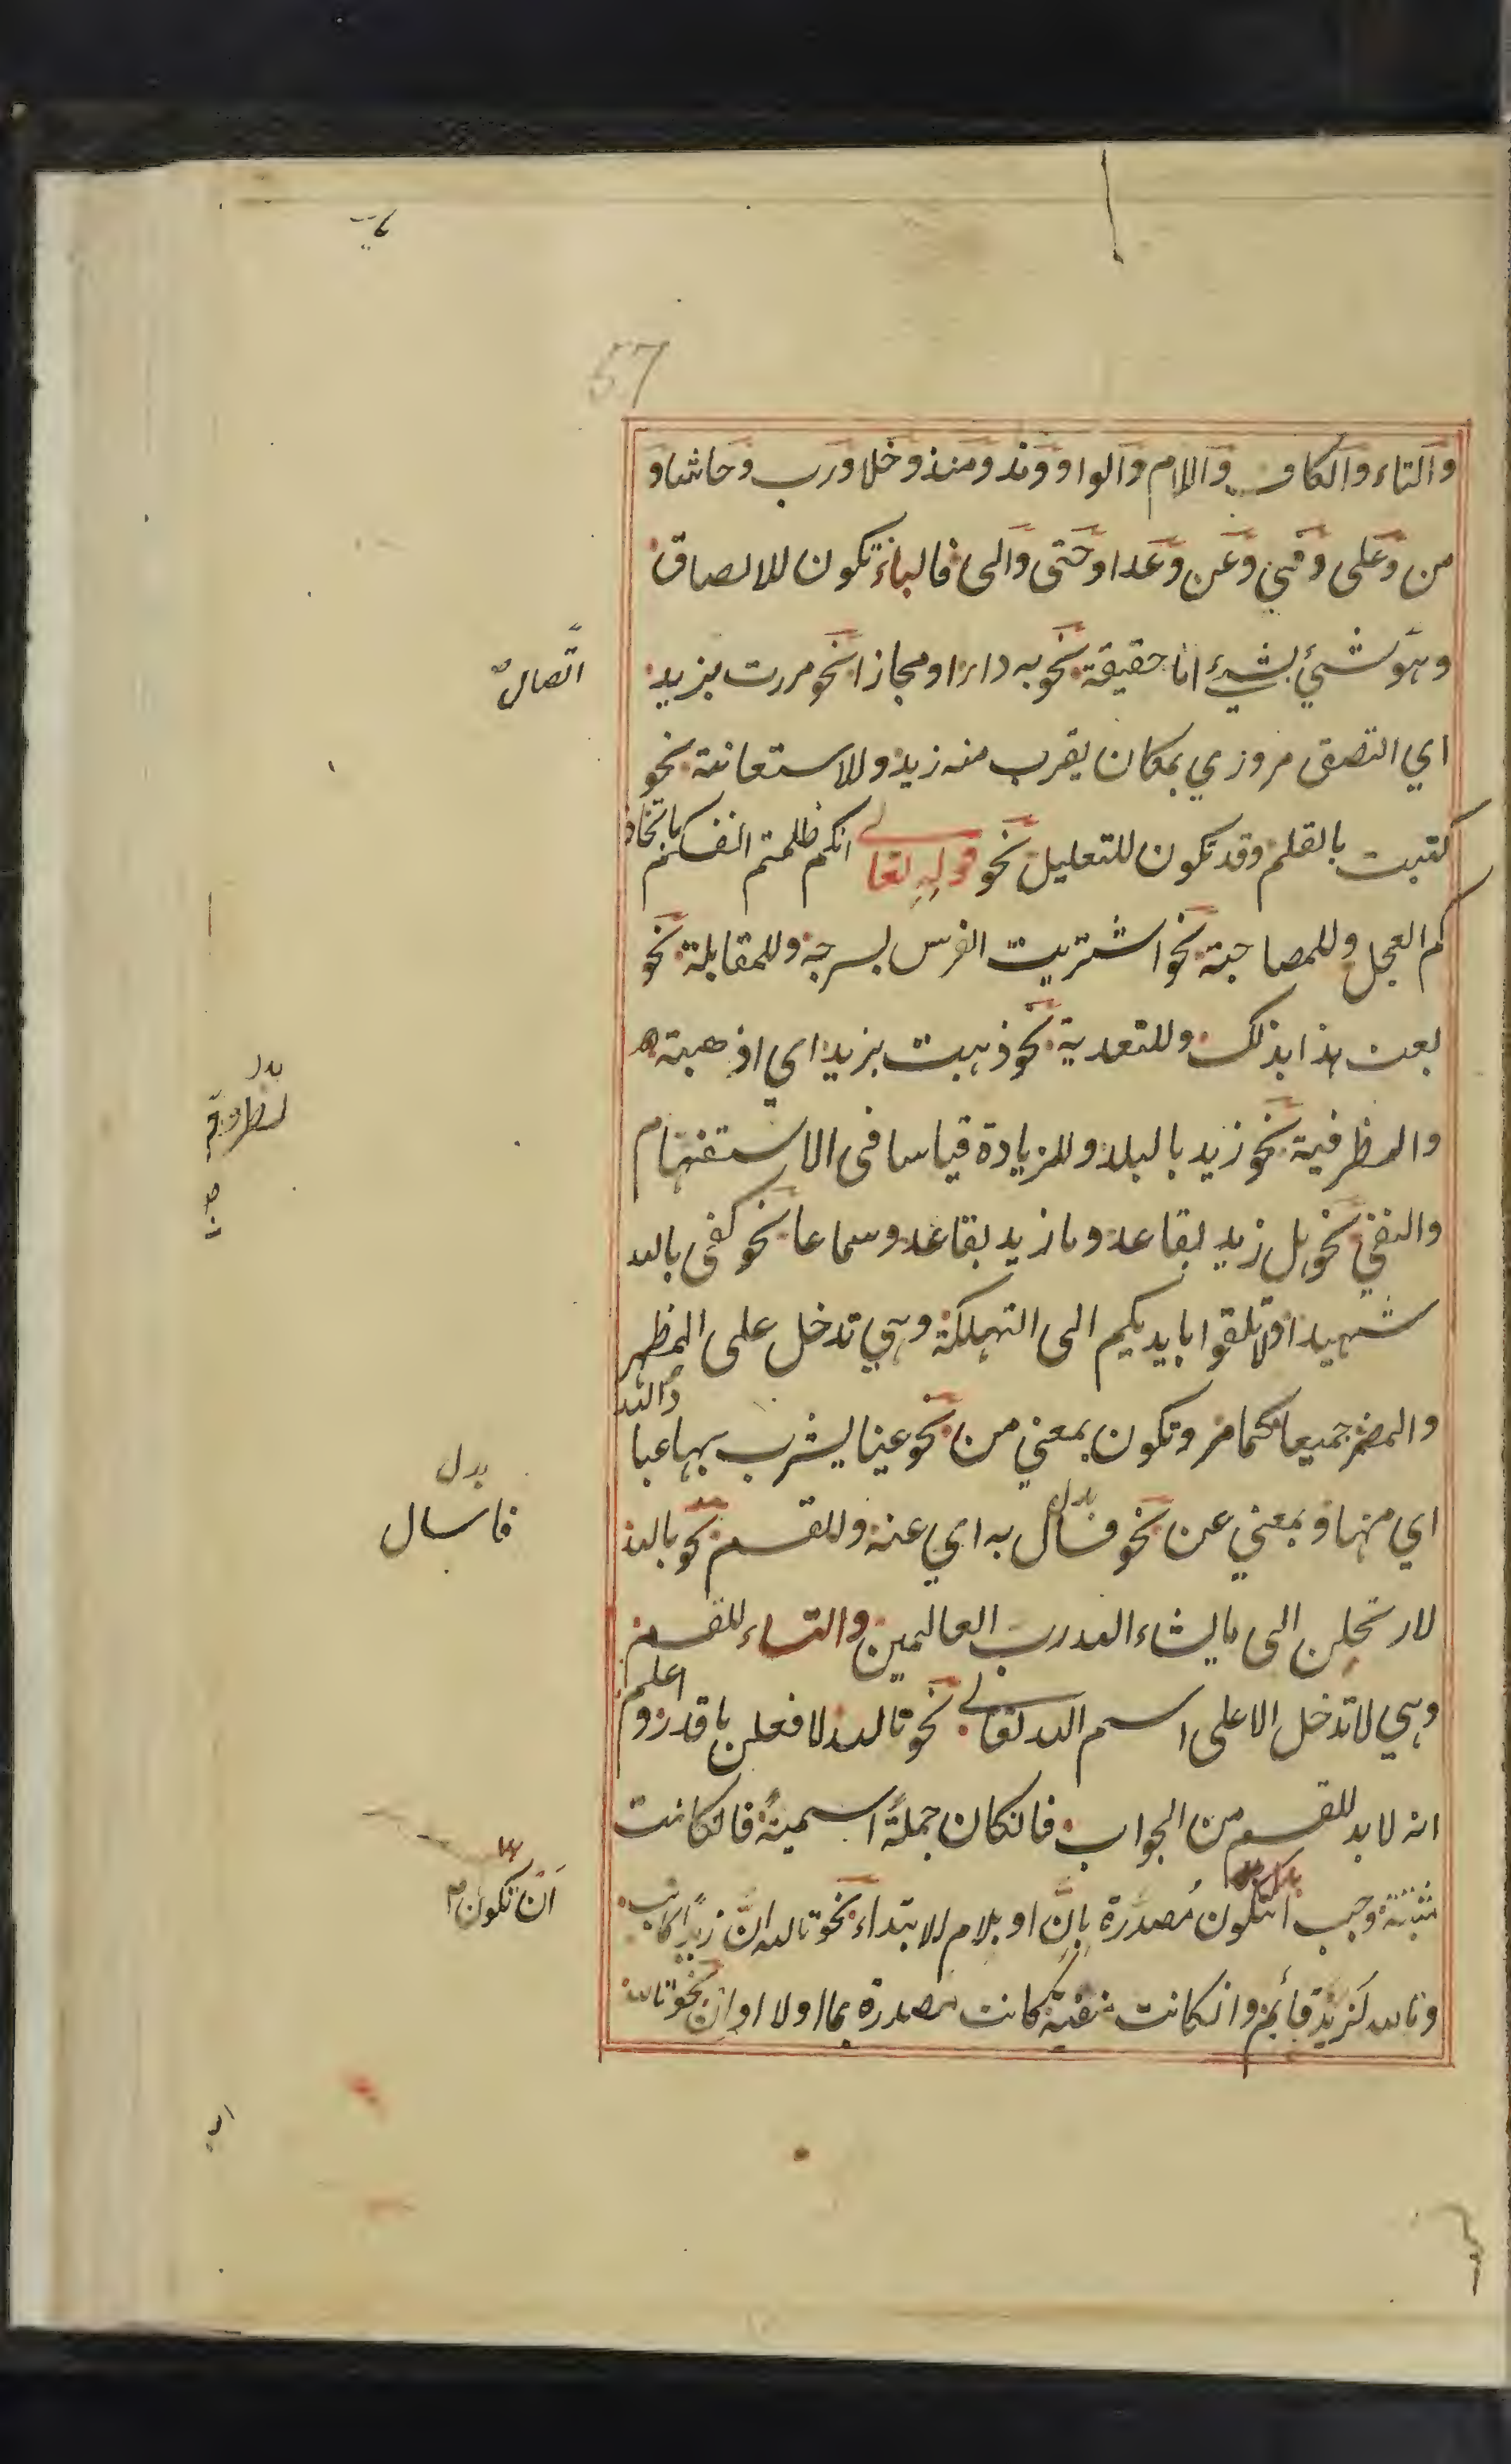 57
والتاء والكاف واللام والواو ومذ ومنذ وخلا ورب وحاشا و
من وعلى وفي وعن وعدا وحتى والى فالباء تكون للالصاق
وهو شئ بشئ اما حقيقة نحو به داء او مجازا نحو مررت بزيد
اتصال
اي التصق مروري بمكان يقرب منه زيد وللاستعانة نحو
كتبت بالقلم وقد تكون للتعليل نحو قوله تعالى انكم ظلمتم انفسكم باتخاذ
كم العجل وللمصاحبة نحو اشتريت الفرس بسرجه وللمقابلة نحو
بعت هذا بذلك وللتعدية نحو ذهبت بزيد اي اذهبته
والظرفية نحو زيد بالبلد وللزيادة قياسا فى الاستفهام
والنفي نحو هل زيد بقاعد وما زيد بقاعد وسماعا نحو كفى بالله
شهيدا ولا تلقوا بايديكم الى التهلكة وهي تدخل على المظهر
والمضمر جميعا كما مر وتكون بمعني من نحو عينا يشرب بها عبا والله
اي منها وبمعني عن نحو فسال به اي عنه وللقسم نحو بالله
بدل
فاسال
لارتحلن الى ما يشاء الله رب العالمين والتاء للقسم
وهي لا تدخل الا على اسم الله تعالى نحو تالله لافعلن ما قدر واعلم
انه لا بد للقسم من الجواب فانكان جملة اسمية فانكانت
مثبتة وجب انتكون مصدرة بان او بلام الابتداء نحو تالله ان زيدا كاتب
ان تكون
وتالله لزيد قائم وانكانت منفية كانت مصدرة بما او لا او ان نحو تالله